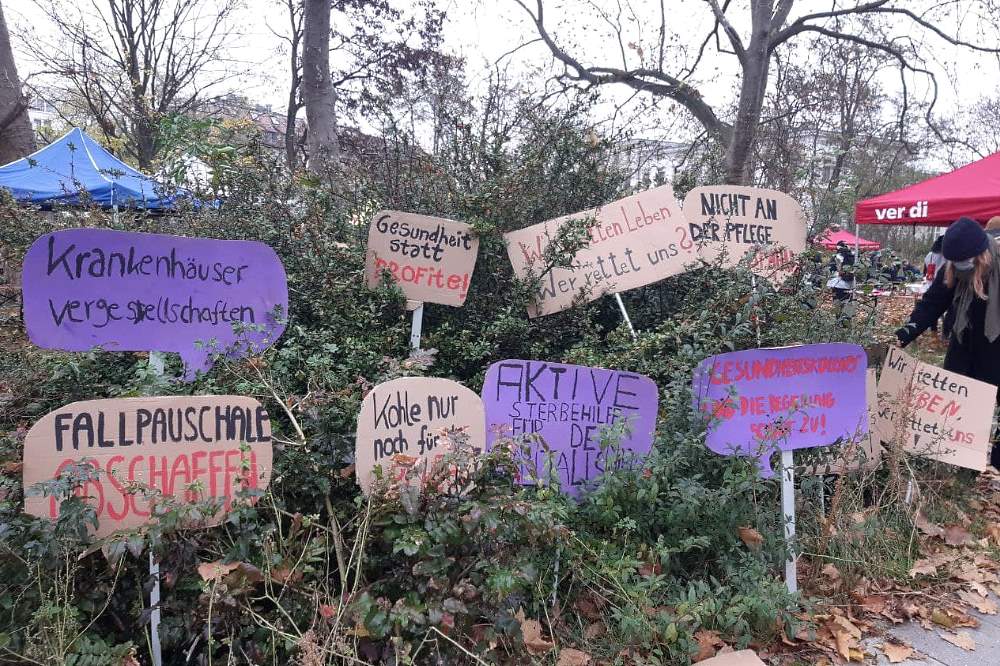 Krankenhäuser
vergesellschaften
Gesundheit
statt
PROFite!
Wir retten Leben
Wer rettet uns?
NICHT AN
DER PFLEGE
ver di
FALLPAUSCHALE
ABSCHAFFEN
Kohle nur
noch für
AKTIVE
STERBEHILFE
FÜR DE
GESUNDHEITSKOLLAPS
UND DIE REGIERUNG
ZU!
Wir retten
LEBEN
Wer rettet uns